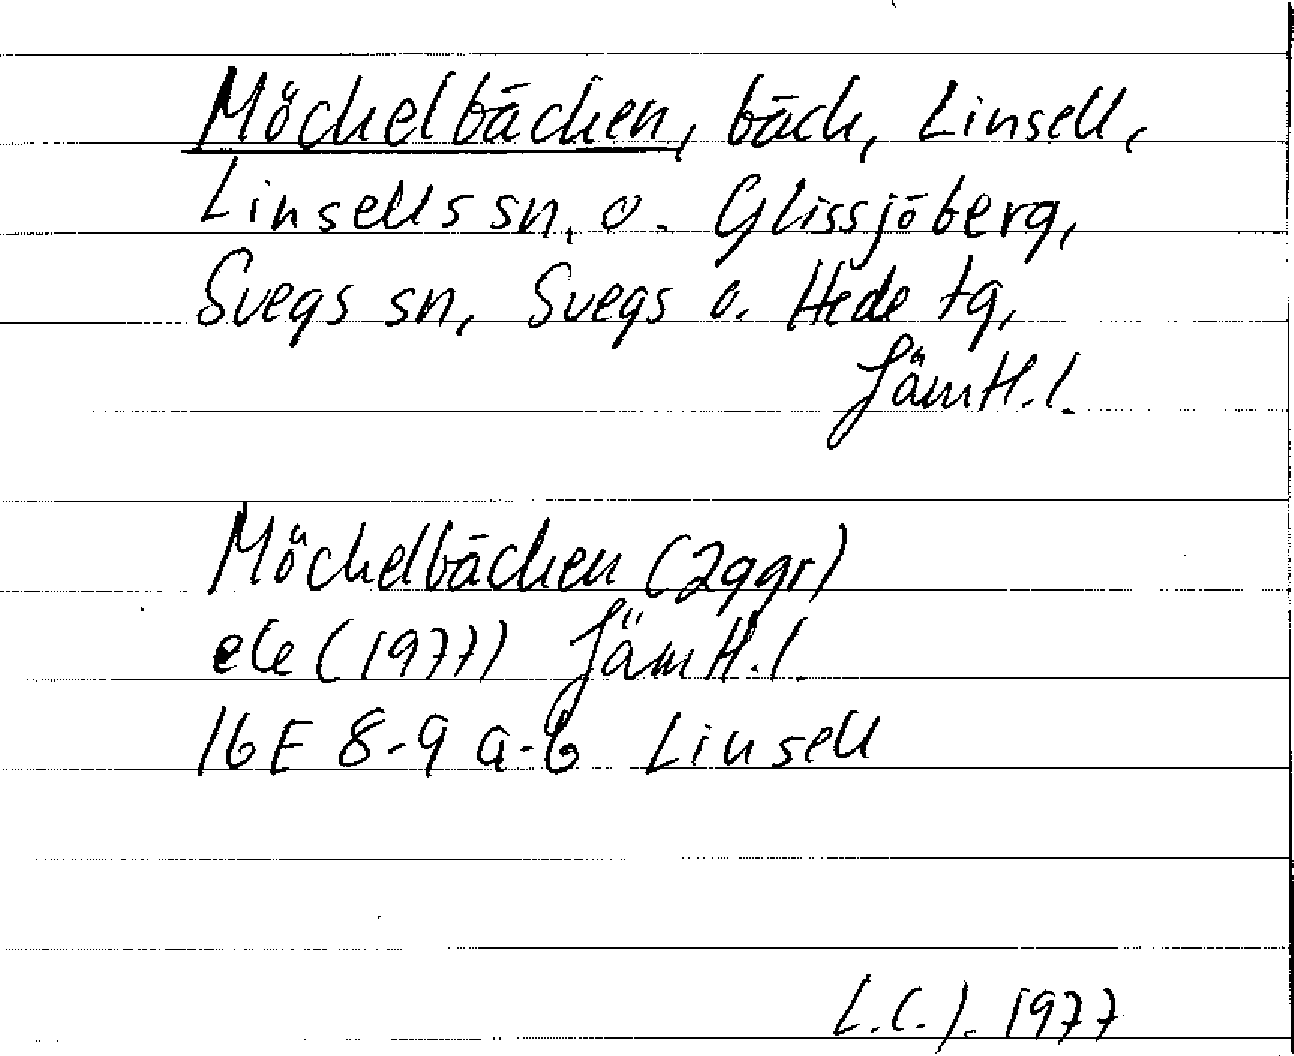 Möckelbäcken, bäck, Linsell,
Linsells sn, o. Glissjöberg,
Svegs sn, Svegs o. Hede tg,
Jämtl. l.
Möckelbäcken (2ggr)
ek (1977) Jämtl. l.
16E 8-9 a-b Linsell
L.C.J. 1977